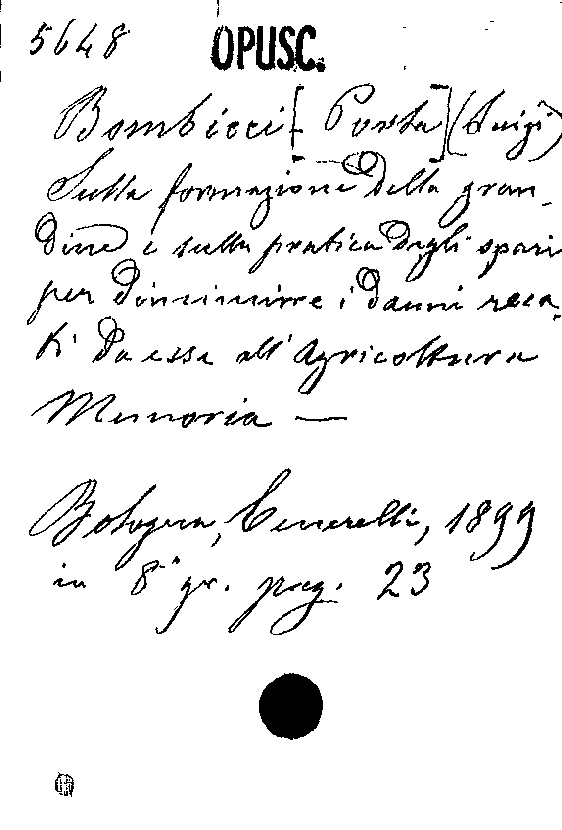 5648 OPUSC.
Bombicci [Porta] (Luigi)
Sulla formazione della gran-
dine e sulla pratica degli spari
per diminuire i danni reca-
ti da essa all'Agricoltura
Memoria —
Bologna, Cenerelli, 1899
in 8° gr. pag. 23